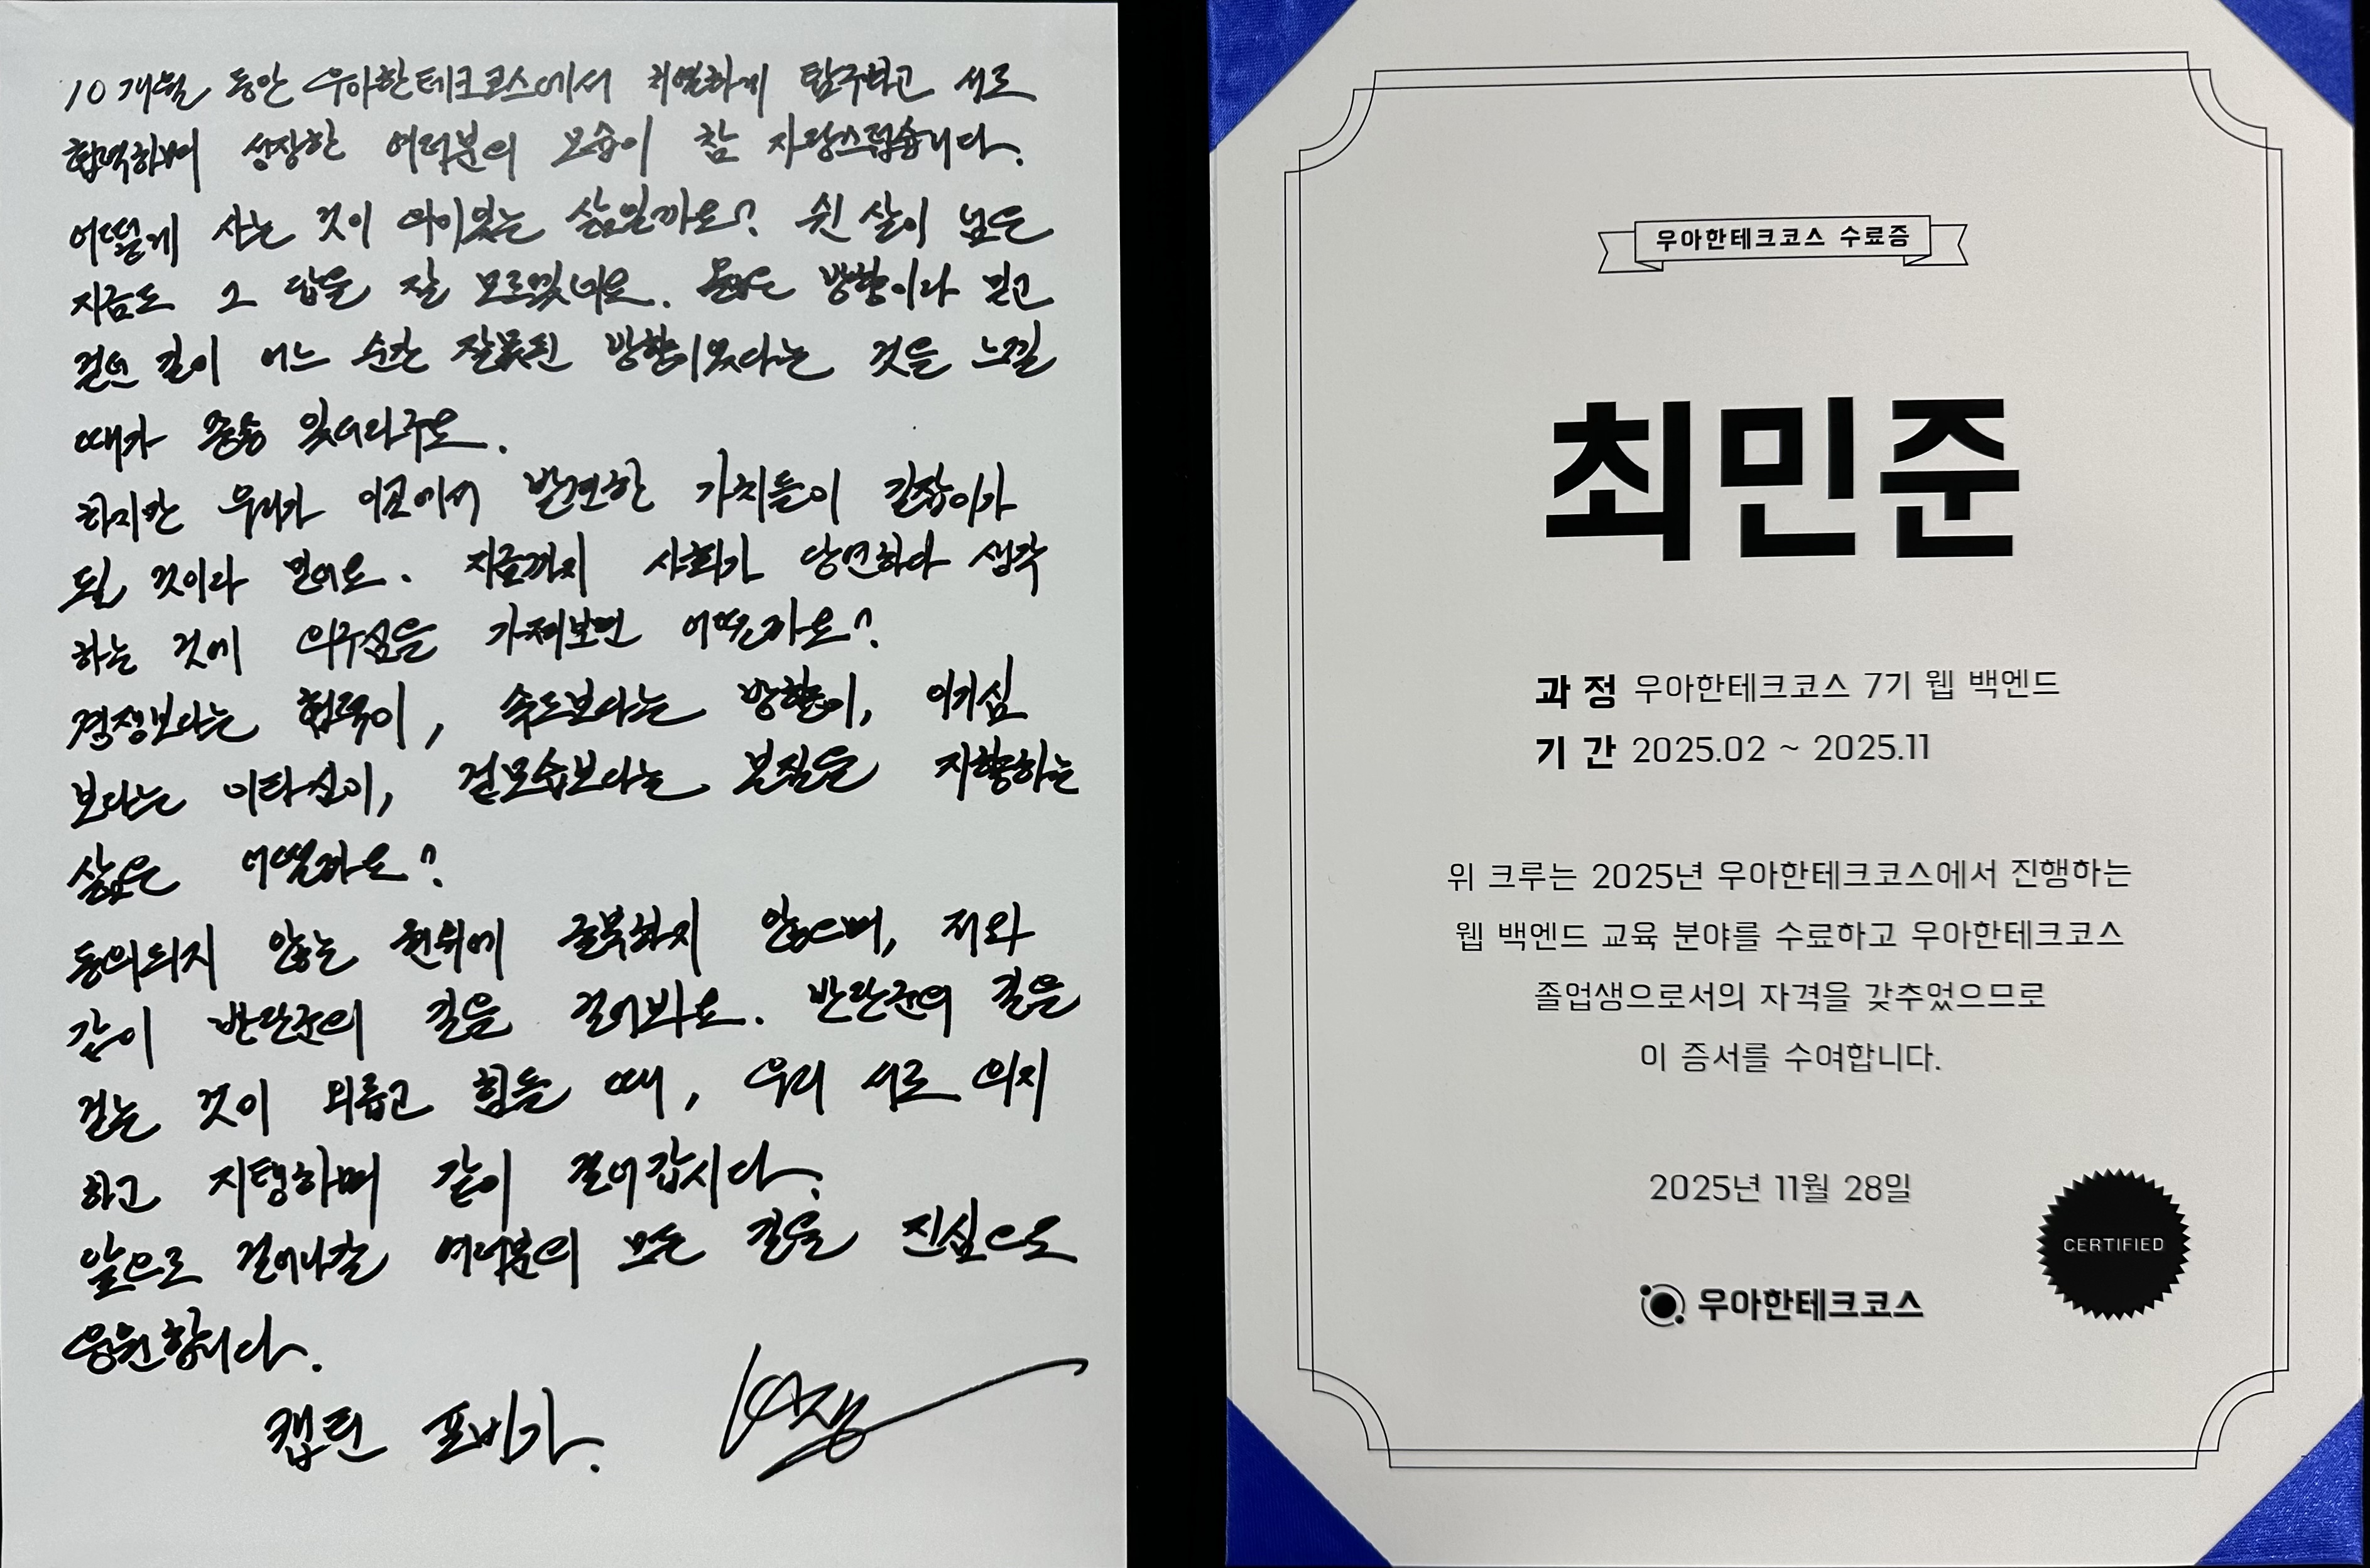 10개월 동안 우아한테크코스에서 치열하게 탐구하고 서로
협력하며 성장한 여러분의 모습이 참 자랑스럽습니다.
어떻게 사는 것이 의미있는 삶일까요? 쉰 살이 넘은
지금도 그 답을 잘 모르겠네요. 옳은 방향이라 믿고
걷던 길이 어느 순간 잘못된 방향이었다는 것을 느낄
때가 종종 있더라구요.
하지만 우리가 이곳에서 발견한 가치들이 길잡이가
될 것이라 믿어요. 지금까지 사회가 당연하다 생각
하는 것에 의구심을 가져보면 어떨까요?
경쟁보다는 협력이, 속도보다는 방향이, 이기심
보다는 이타심이, 겉모습보다는 본질을 지향하는
삶은 어떨까요?
동의되지 않는 권위에 굴복하지 않으며, 저와
같이 반란군의 길을 걸어봐요. 반란군의 길을
걷는 것이 외롭고 힘들 때, 우리 서로 의지
하고 지탱하며 같이 걸어갑시다.
앞으로 걸어나갈 여러분의 모든 길을 진심으로
응원합니다.
캡틴 포비가.
우아한테크코스 수료증
최민준
과 정 우아한테크코스 7기 웹 백엔드
기 간 2025.02 ~ 2025.11
위 크루는 2025년 우아한테크코스에서 진행하는
웹 백엔드 교육 분야를 수료하고 우아한테크코스
졸업생으로서의 자격을 갖추었으므로
이 증서를 수여합니다.
2025년 11월 28일
CERTIFIED
우아한테크코스